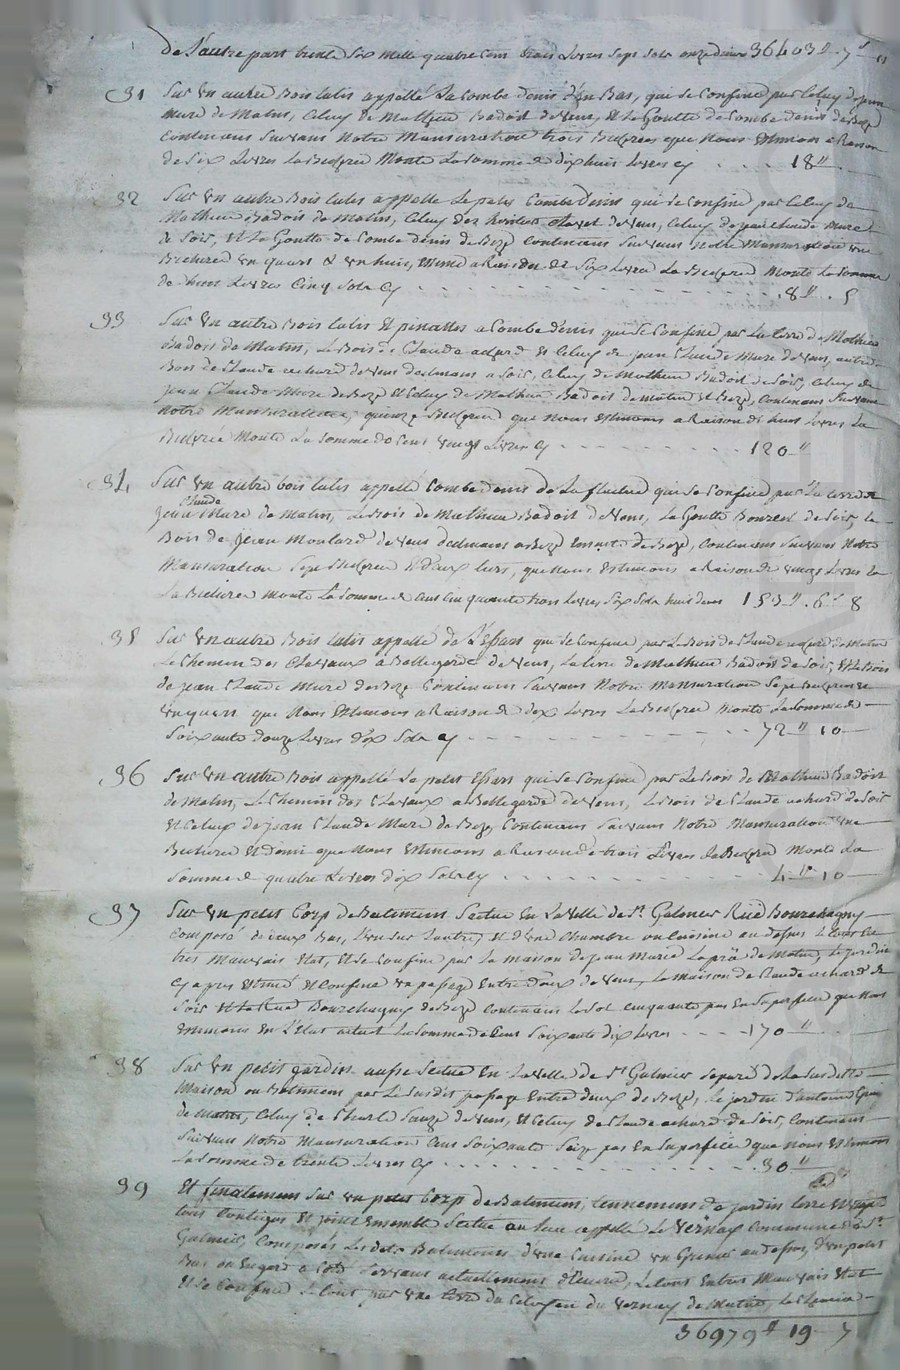 De L'autre part trente Six mille quatre Cent trois Livres Sept Sols onze deniers 36403# . 7s 11
31 Sur Un autre Bois tailis appellé La Combe denis d'En Bas, qui Se Confine par Celuy de jean
Mure de Matin, Celuy de Mathieu Badoit de Vent, Et La Goutte de Combe denis de Bize
Contenans Suivans Notre Mansuration trois Bicherées que Nous Estimons a Raison
de Six Livres La Bicherée Monte La Somme de dix huit Livres Cy . . . . 18#
32 Sur Un autre Bois tailis appellé Le petit Combe Denis qui Se Confine par Celuy de
Mathieu Badoit de Matin, Celuy des hoirs Clavet de Vent, Celuy de jean Claude Mure
de Soir, Et La Goutte de Combe denis de Bize Contenant Suivans Notre Mansuration Une
Bicherée Un quart & Un huit, Estimé a Raison de Six Livres La Bicherée Monte La Somme
de huit Livres Cinq Sols Cy . . . . . . 8# . 5
33 Sur Un autre Bois tailis Et pinattes a Combe denis qui Se Confine par La terre de Mathieu
Badoit de Matin, Le Bois de Claude achard Et Celuy de jean Claude Mure de Vent, autre
Bois de Claude achard de Vent declinans a Soir, Celuy de Mathieu Badoit de Soir, Celuy de
jean Claude Mure de Bize Et Celuy de Mathieu Badoit de Matin Et Bize, Contenans Suivans
Notre Mansuration, quinze Bicherées que Nous Estimons a Raison de huit Livres La
Bicherée Monte La Somme de Cent vingt Livres Cy . . . . . . 120#
34 Sur Un autre bois tailis appellé Combe denis de La qui Se Confine par La terre de
jean Claude Mure de Matin, Le Bois de Mathieu Badoit de Vent, La Goutte de Soir, Le
Bois de Jean Moulard de Vent declinans a Bize de Bize, Contenans Suivans Notre
Mansuration Sept Bicherées Et deux tiers, que Nous Estimons a Raison de vingt Livres La
La Bicherée Monte La Somme de Cent Cinquante trois Livres Six Sols huit deniers 153# . 6s 8
35 Sur Un autre Bois tailis appellé de L'Essart qui Se Confine par Le Bois de Claude achard de Matin
Le Chemin des Chevaux a Bellegarde de Vent, La terre de Mathieu Badoit de Soir, Et Le Bois
de jean Claude Mure de Bize Contenans Suivans Notre Mansuration Sept Bicherées Et
Un quart que Nous Estimons a Raison de dix Livres La Bicherée Monte La Somme de
Soixante douze Livres dix Sols Cy . . . . . . 72# 10
36 Sur Un autre Bois appellé Le petit Essart qui Se Confine par Le Bois de Mathieu Badoit
de Matin, Le Chemin des Chevaux a Bellegarde de Vent, Le Bois de Claude achard de Soir
Et Celuy de jean Claude Mure de Bize, Contenans Suivans Notre Mansuration Une
Bicherée Et demi que Nous Estimons a Raison de trois Livres La Bicherée Monte La
Somme de quatre Livres dix Sols Cy . . . . . . 4# 10
37 Sur Un petit Corp de Batiment Scitué En La Ville de St. Galmier Rue Bourchagny
Composé de deux Bas, L'un Sur L'autre, Et d'une Chambre ou Cuisine au dessus Le tout En
très Mauvais Etat, Et Se Confine par La maison de jean Marie de Matin, Le jardin
Cy apres Estimé Et Confiné Un passage Entre deux de Vent, La Maison de Claude achard de
Soir Et La Rue Bourchagny de Bize Contenans Le Sol Cinquante pas En Superficie que Nous
Estimons En L'Etat actuel La Somme de Cent Soixante dix Livres . . . . 170#
38 Sur Un petit jardin aussi Scitué En La Ville de St Galmier Separé de La Susditte
Maison ou Batiment par Le Susdit passage Entre deux de Bize, Le jardin d'antoine
de Matin, Celuy de Charle Sauze de Vent, Et Celuy de Claude achard de Soir, Contenans
Suivans Notre Mansuration Cent Soixante Seize pas En Superficie que Nous Estimons
La Somme de trente Livres Cy . . . . . . 30#
39 Et finalement Sur Un petit Corp de Batiment, tennement de jardin terre Et
tous Contigus Et joint Ensemble Scitué au Lieu appellé Le Vernay Commune de St
Galmier, Composés Lesdits Batiments d'une Cuisine Un Grenier au dessus, d'Un petit
Bas ou Hegard a Coté Servant actuellement d'Ecurie, Le tout En tres Mauvais Etat
Et Se Confine Le tout par Une terre du Citoyen du Vernay de Matin, Le Chemin
36979# 19 7